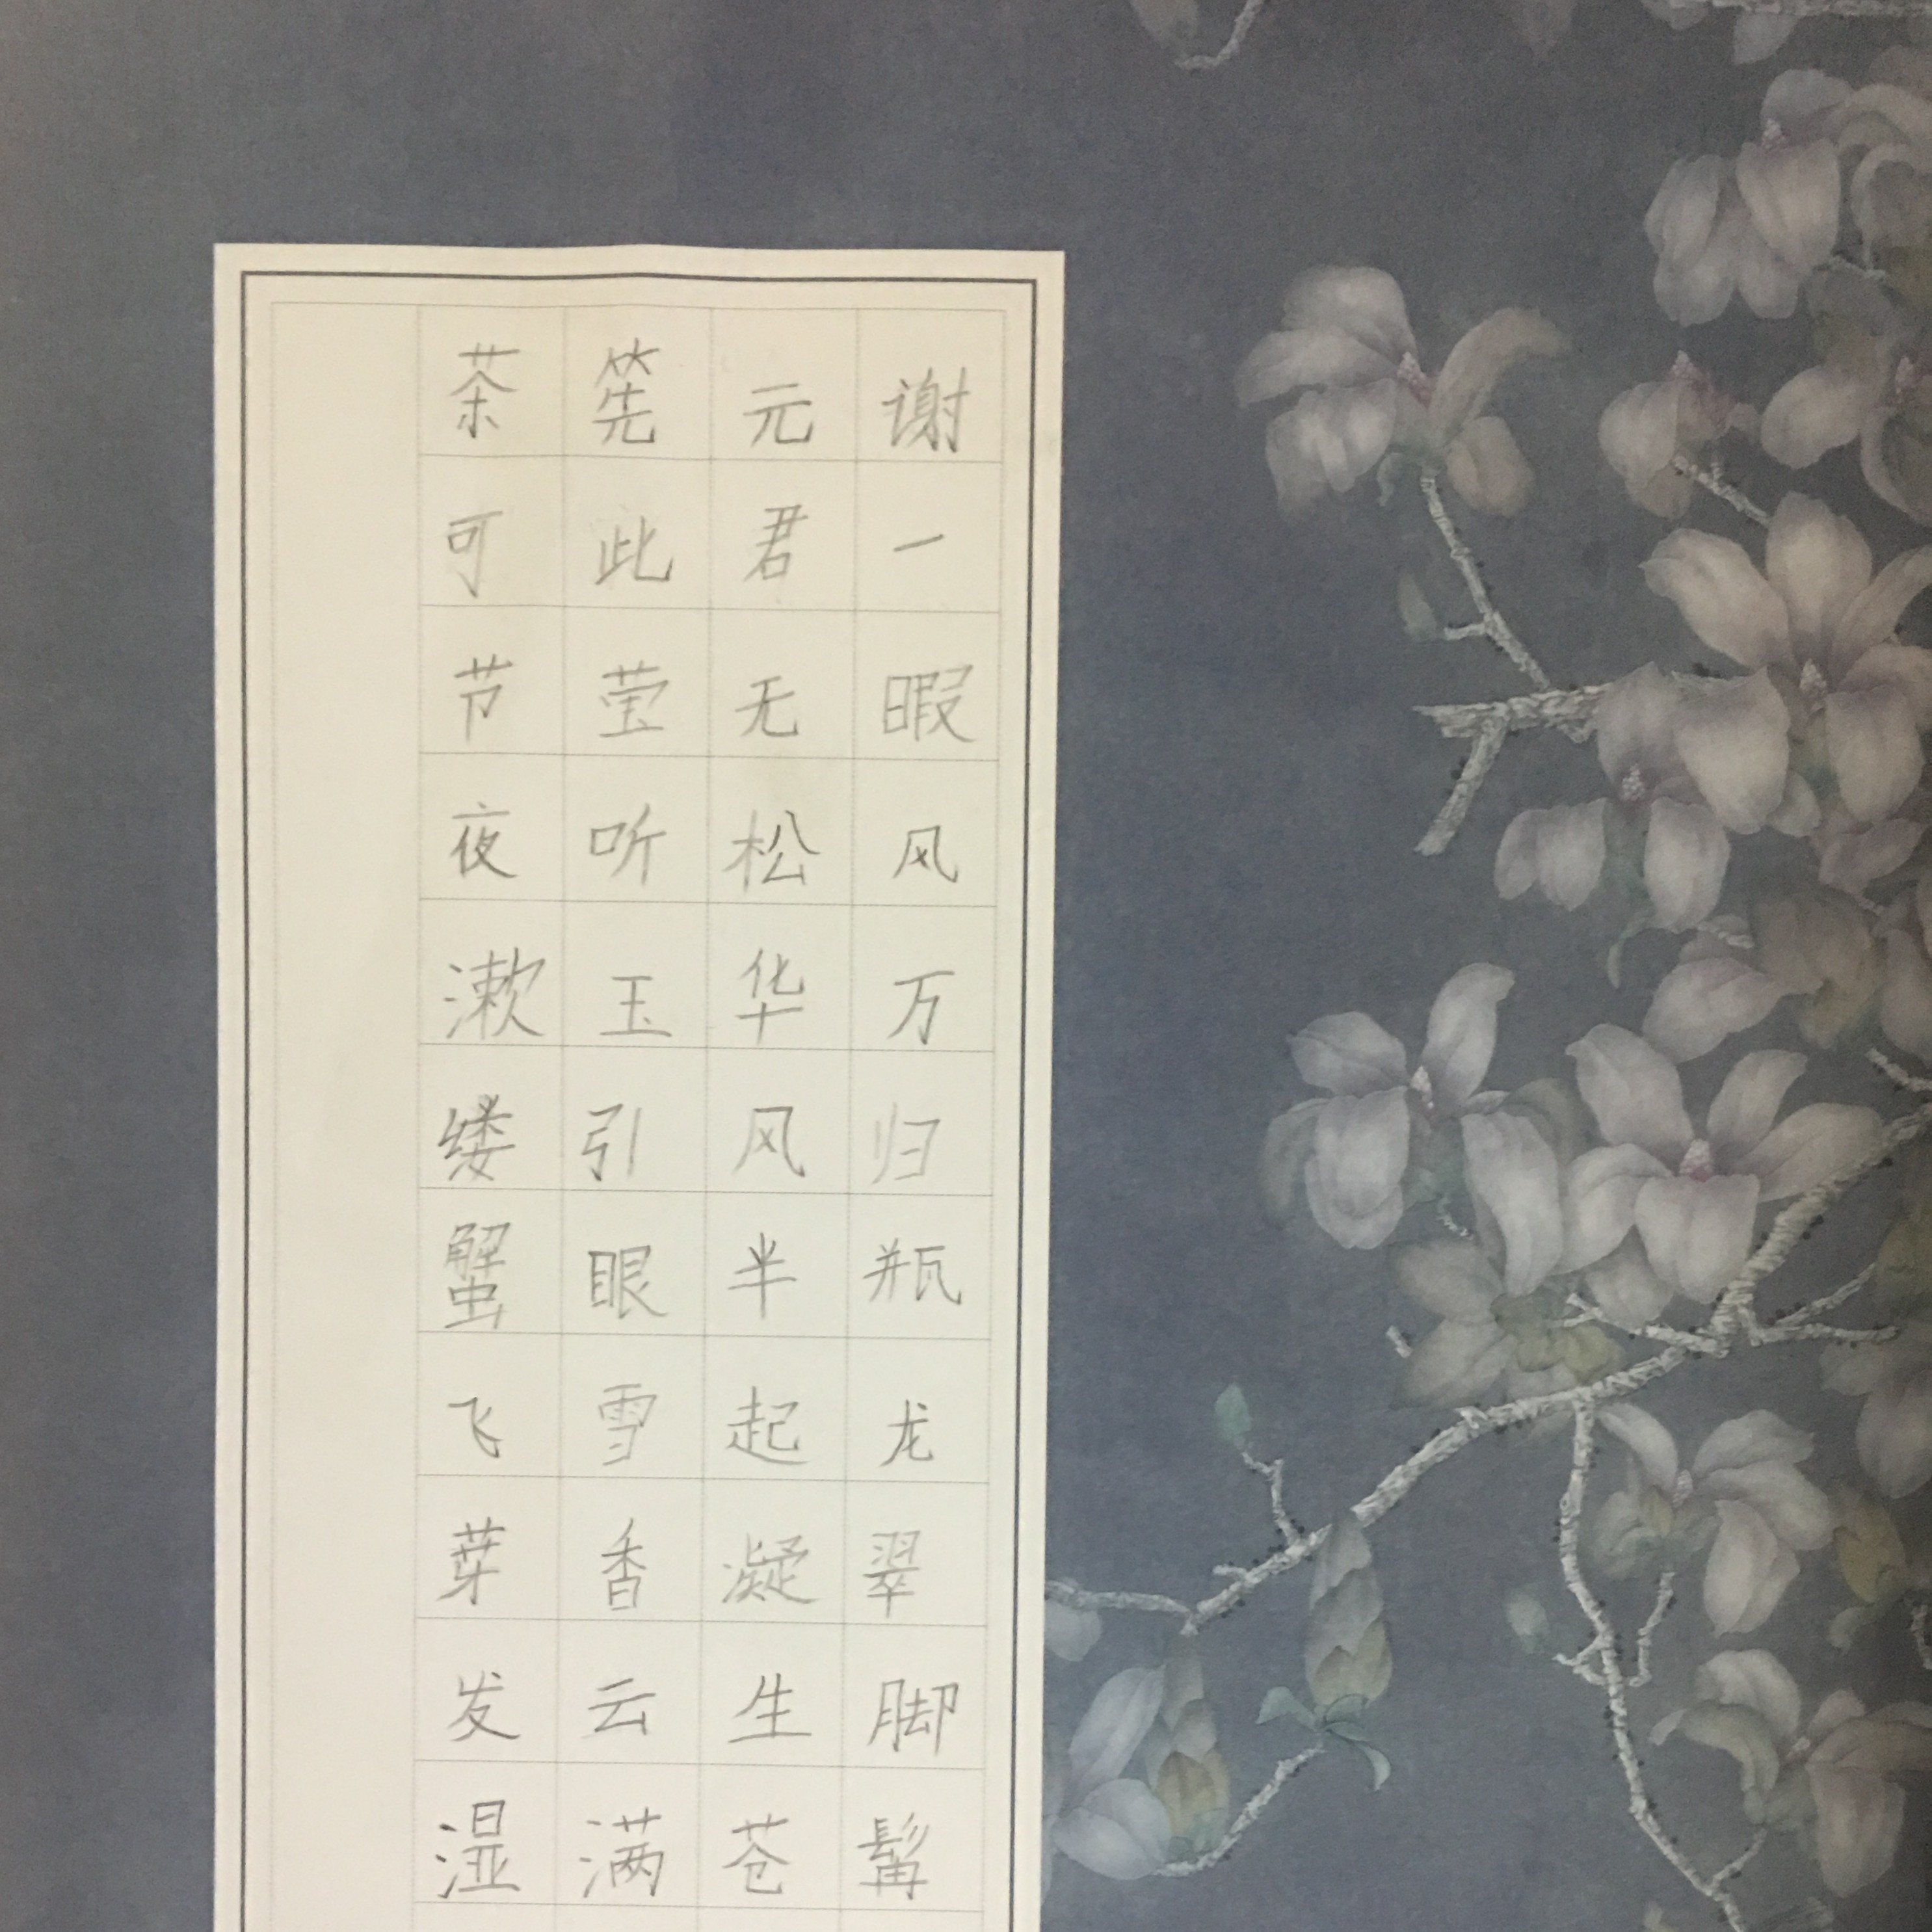 茶筅元谢
可此君一
节莹无暇
夜听松风
漱玉华万
缕引风归
蟹眼半瓶
飞雪起龙
芽香凝翠
发云生脚
湿满苍髯